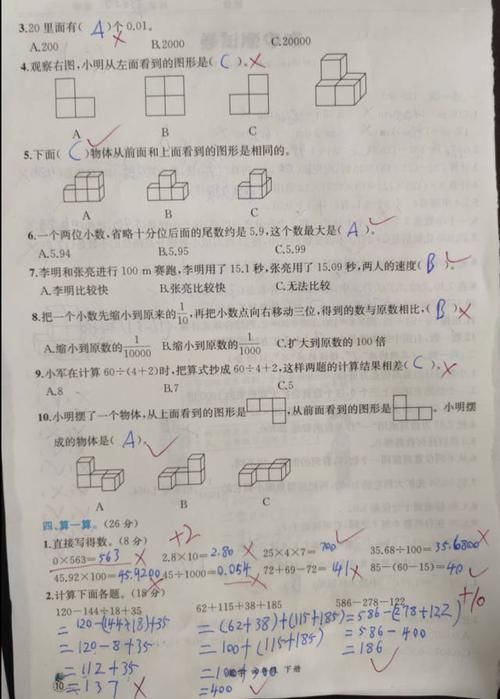 3.20里面有( A )个0.01。
A.200 B.2000 C.20000
4.观察右图,小明从左面看到的图形是( C )。
A B C
5.下面( C )物体从前面和上面看到的图形是相同的。
A B C
6.一个两位小数,省略十分位后面的尾数约是5.9,这个数最大是( A )。
A.5.94 B.5.95 C.5.99
7.李明和张亮进行100 m赛跑,李明用了15.1秒,张亮用了15.09秒,两人的速度( B )。
A.李明比较快 B.张亮比较快 C.无法比较
8.把一个小数先缩小到原来的1/10,再把小数点向右移动三位,得到的数与原数相比,( B )
A.缩小到原数的1/10000 B.缩小到原数的1/1000 C.扩大到原数的100倍
9.小军在计算60÷(4+2)时,把算式抄成60÷4+2,这样两题的计算结果相差( C )。
A.8 B.7 C.5
10.小明摆了一个物体,从上面看到的图形是,从前面看到的图形是,小明摆
成的物体是( A )。
A B C
四、算一算。(26分)
1.直接写得数。(8分) +2
0×563=563 2.8×10=2.80 25×4×7=700 35.68÷100=35.6800
45.92×100=45.9200 45÷1000=0.054 72+69-72=41 85-(60-15)=40
2.计算下面各题。(18分) +10
120-144÷18+35 62+115+38+185 586-278-122
=120-(144÷18)+35 =(62+38)+(115+185) =586-(278+122)
=120-8+35 =100+(115+185) =586-400
=112+35 =100+300 =186
=137 =400
10 下册